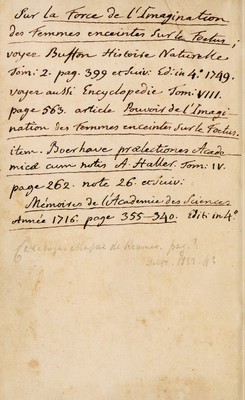 Sur la Force de l'Imagination
des Femmes enceintes Sur le Foetus;
voyez Buffon Histoire Naturelle
Tom: 2. pag. 399 et Suiv: Ed: in 4.° 1749.
voyez aussi Encyclopedie Tom: VIII.
page 563. article Pouvoir de l'Imagi
nation des Femmes enceintes Sur le Foetus.
item. Boerhave prælectiones Acade
micæ cum notis A. Haller. Tom: IV.
page 262. note 26. et Suiv:
Mémoires de l'Academie des Sciences
Année 1716. page 355-340. Edit: in 4.°